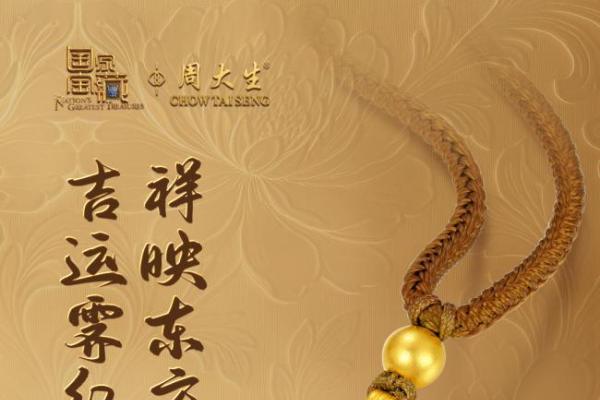 国家宝藏
NATION'S GREATEST TREASURES
周大生®
CHOW TAI SENG
祥映东方
吉运霁红